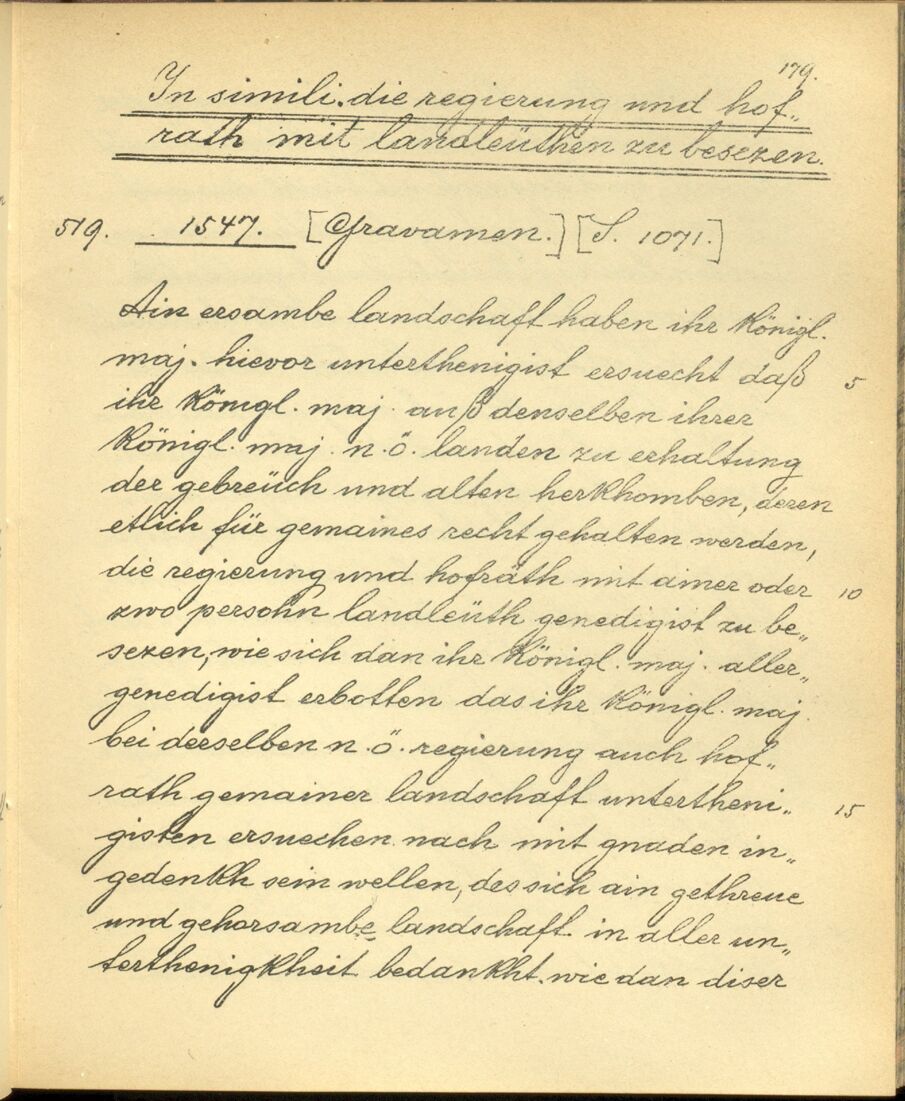 179.
In simili. die regierung und hof„
rath mit landleüthen zu besezen.
519. 1547. [Gravamen.] [S. 1071.]
Ain ersambe landschaft haben ihr Königl.
maj. hievor unterthenigist ersuecht daß 5
ihr Königl. maj. auß denselben ihrer
Königl. maj. n.ö. landen zu erhaltung
der gebreüch und alten herkhomben, deren
etlich für gemaines recht gehalten werden,
die regierung und hofräth mit ainer oder 10
zwo persohn landleüth genedigist zu be„
sezen, wie sich dan ihr Königl. maj. aller„
genedigist erbotten das ihr Königl. maj.
bei derselben n.ö. regierung auch hof„
rath gemainer landschaft untertheni„ 15
gisten ersuechen nach mit gnaden in„
gedenkh sein wellen, des sich ain gethreue
und gehorsambe landschaft in aller un„
terthenigkheit bedankht. wie dan diser